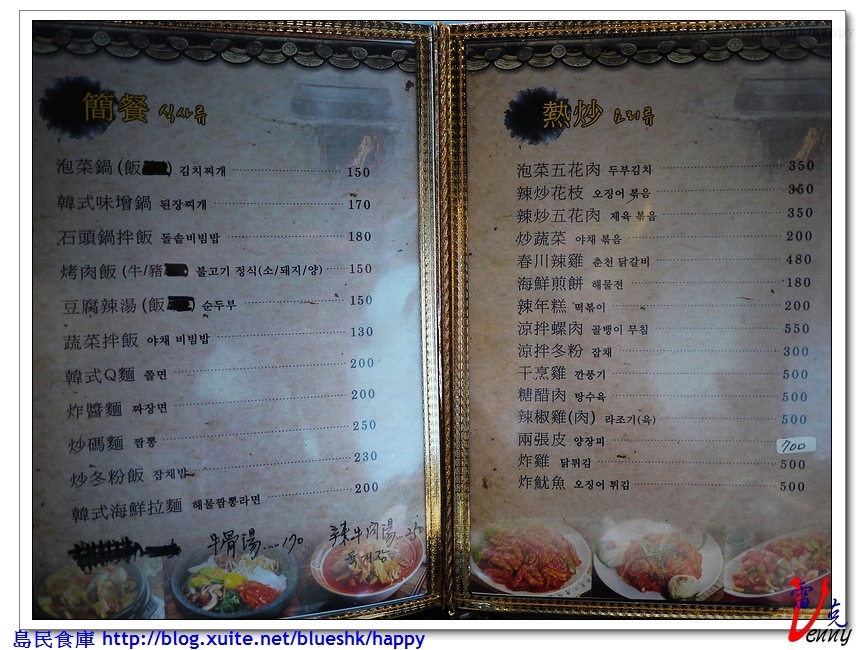 簡餐 식사류
泡菜鍋 (飯 ) 김치찌개 150
韓式味增鍋 된장찌개 170
石頭鍋拌飯 돌솥비빔밥 180
烤肉飯 (牛/豬 불고기 정식(소/돼지/양) 150
豆腐辣湯 (飯 ) 순두부 150
蔬菜拌飯 야채 비빔밥 130
韓式Q麵 쫄면 200
炸醬麵 짜장면 200
炒碼麵 짬뽕 250
炒冬粉飯 잡채밥 230
韓式海鮮拉麵 해물짬뽕라면 200
牛骨湯....170
辣牛肉湯...250
육개장
熱炒 요리류
泡菜五花肉 두부김치 350
辣炒花枝 오징어 볶음 350
辣炒五花肉 제육 볶음 350
炒蔬菜 야채 볶음 200
春川辣雞 춘천 닭갈비 480
海鮮煎餅 해물전 180
辣年糕 떡볶이 200
涼拌螺肉 골뱅이 무침 550
涼拌冬粉 잡채 300
干烹雞 깐풍기 500
糖醋肉 탕수육 500
辣椒雞(肉) 라조기(육) 500
兩張皮 양장피 700
炸雞 닭튀김 500
炸魷魚 오징어 튀김 500
雷克
Venny
島民食庫 http://blog.xuite.net/blueshk/happy